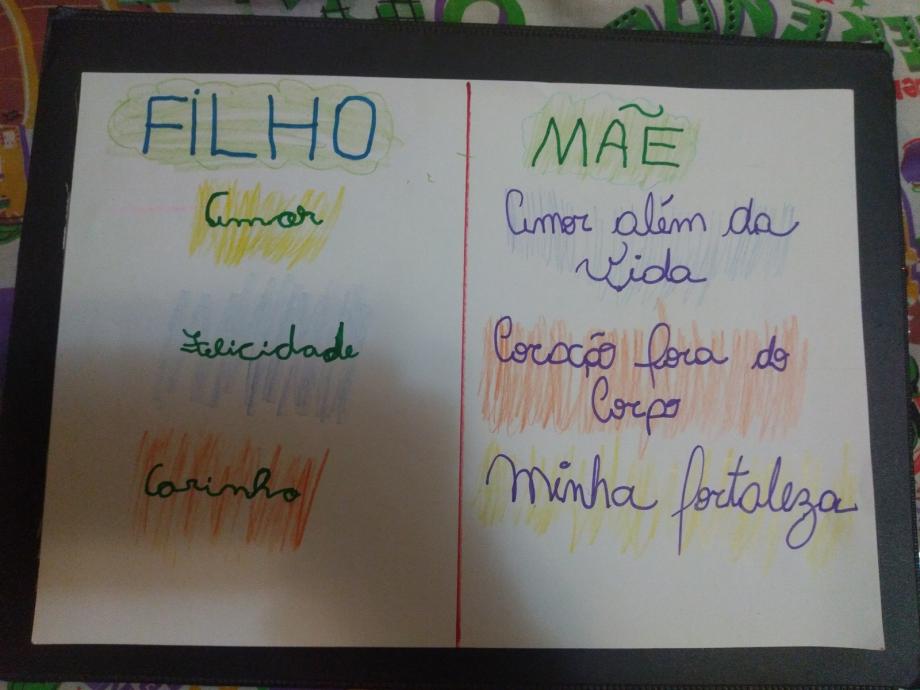 FiLHO
Amor
Felicidade
Carinho
MÃE
Amor além da
Vida
Coração fora do
Corpo
Minha fortaleza